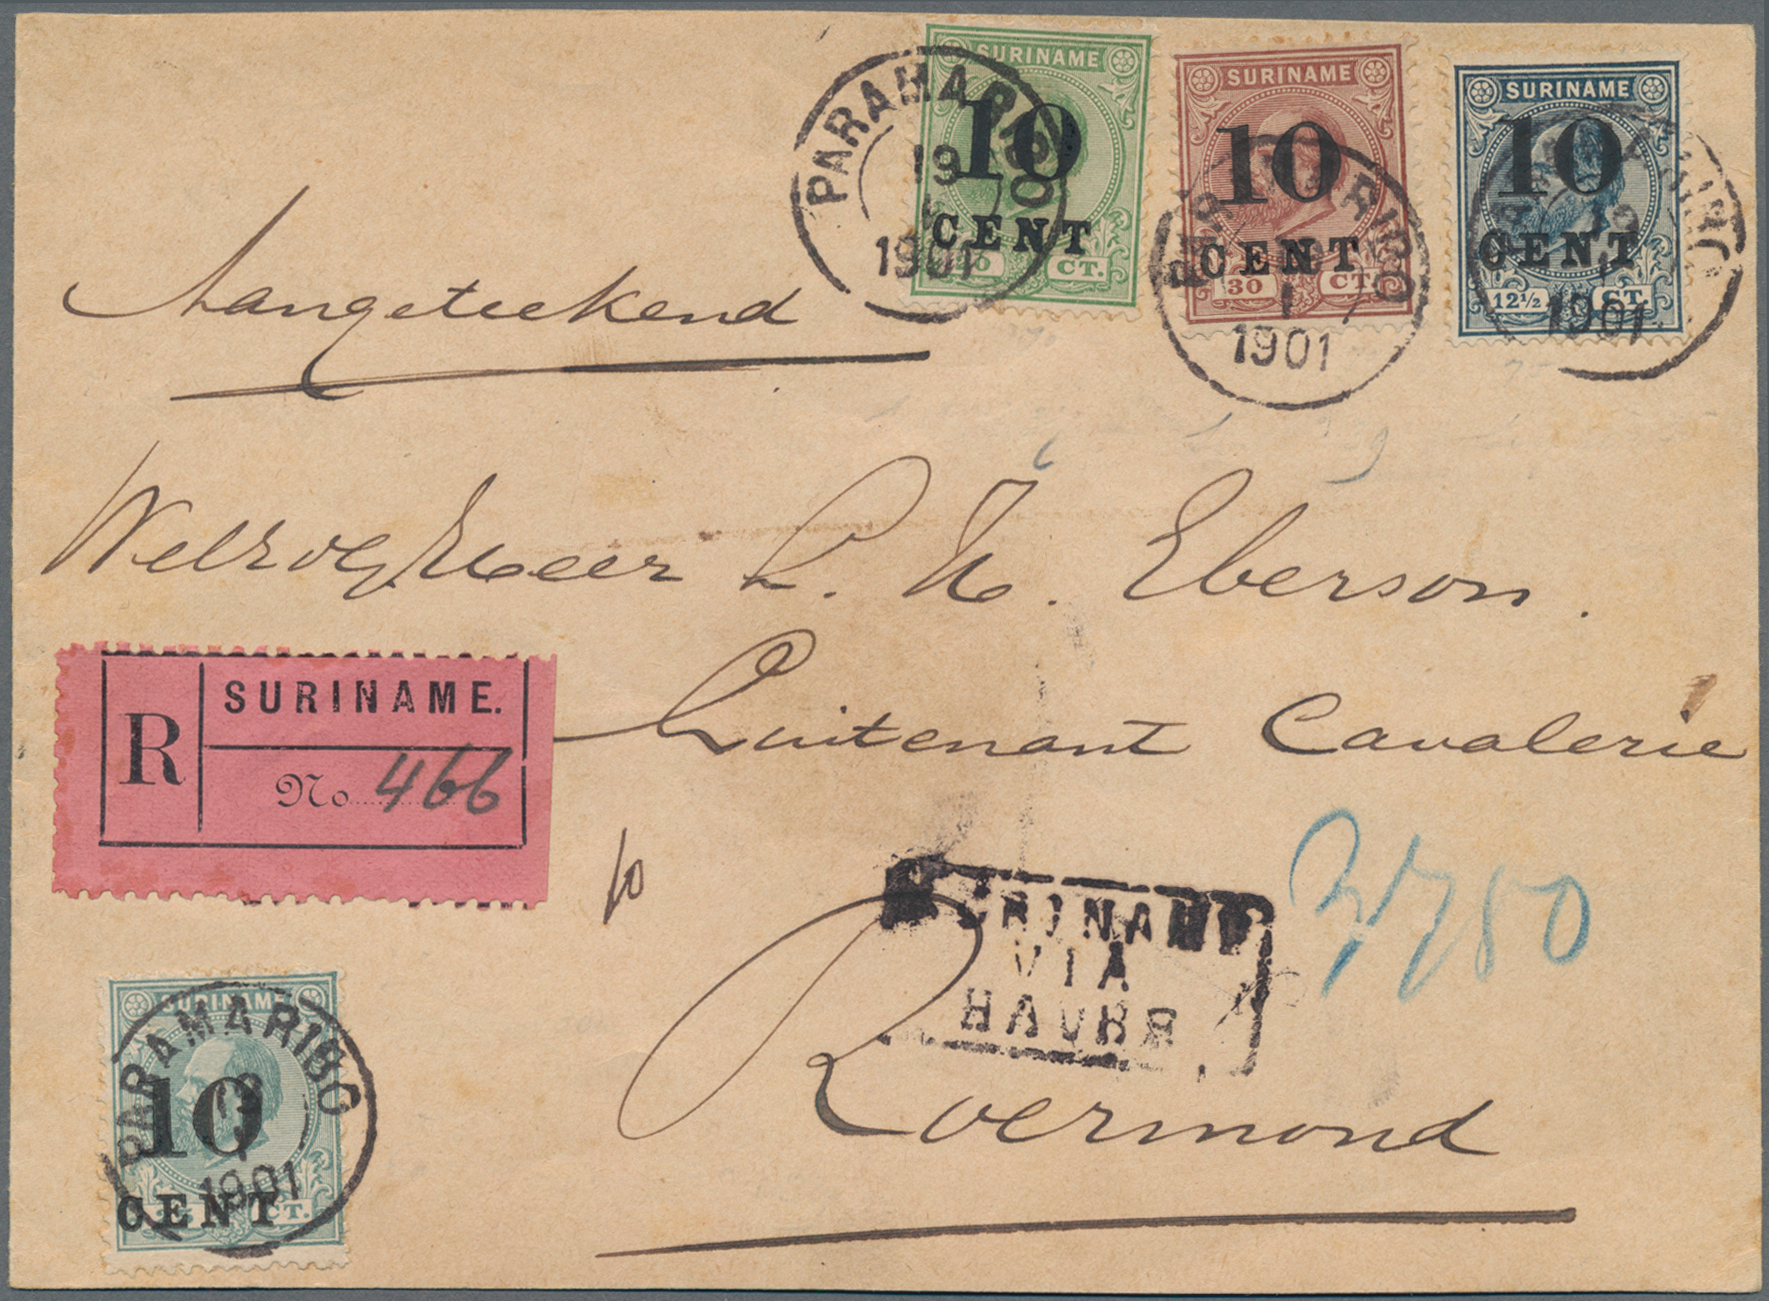 SURINAME
10
CENT
CT.
SURINAME
10
CENT
30 CT.
SURINAME
10
CENT
12½ CT.
PARAMARIBO
19
1901
PARAMARIBO
1
1901
19
1901
Aangeteekend
L. H. Eberson.
Luitenant Cavalerie
R
SURINAME.
No 466
SURINAME
VIA
HAVRE
Roermond
SURINAME
10
CENT
CT.
PARAMARIBO
1901